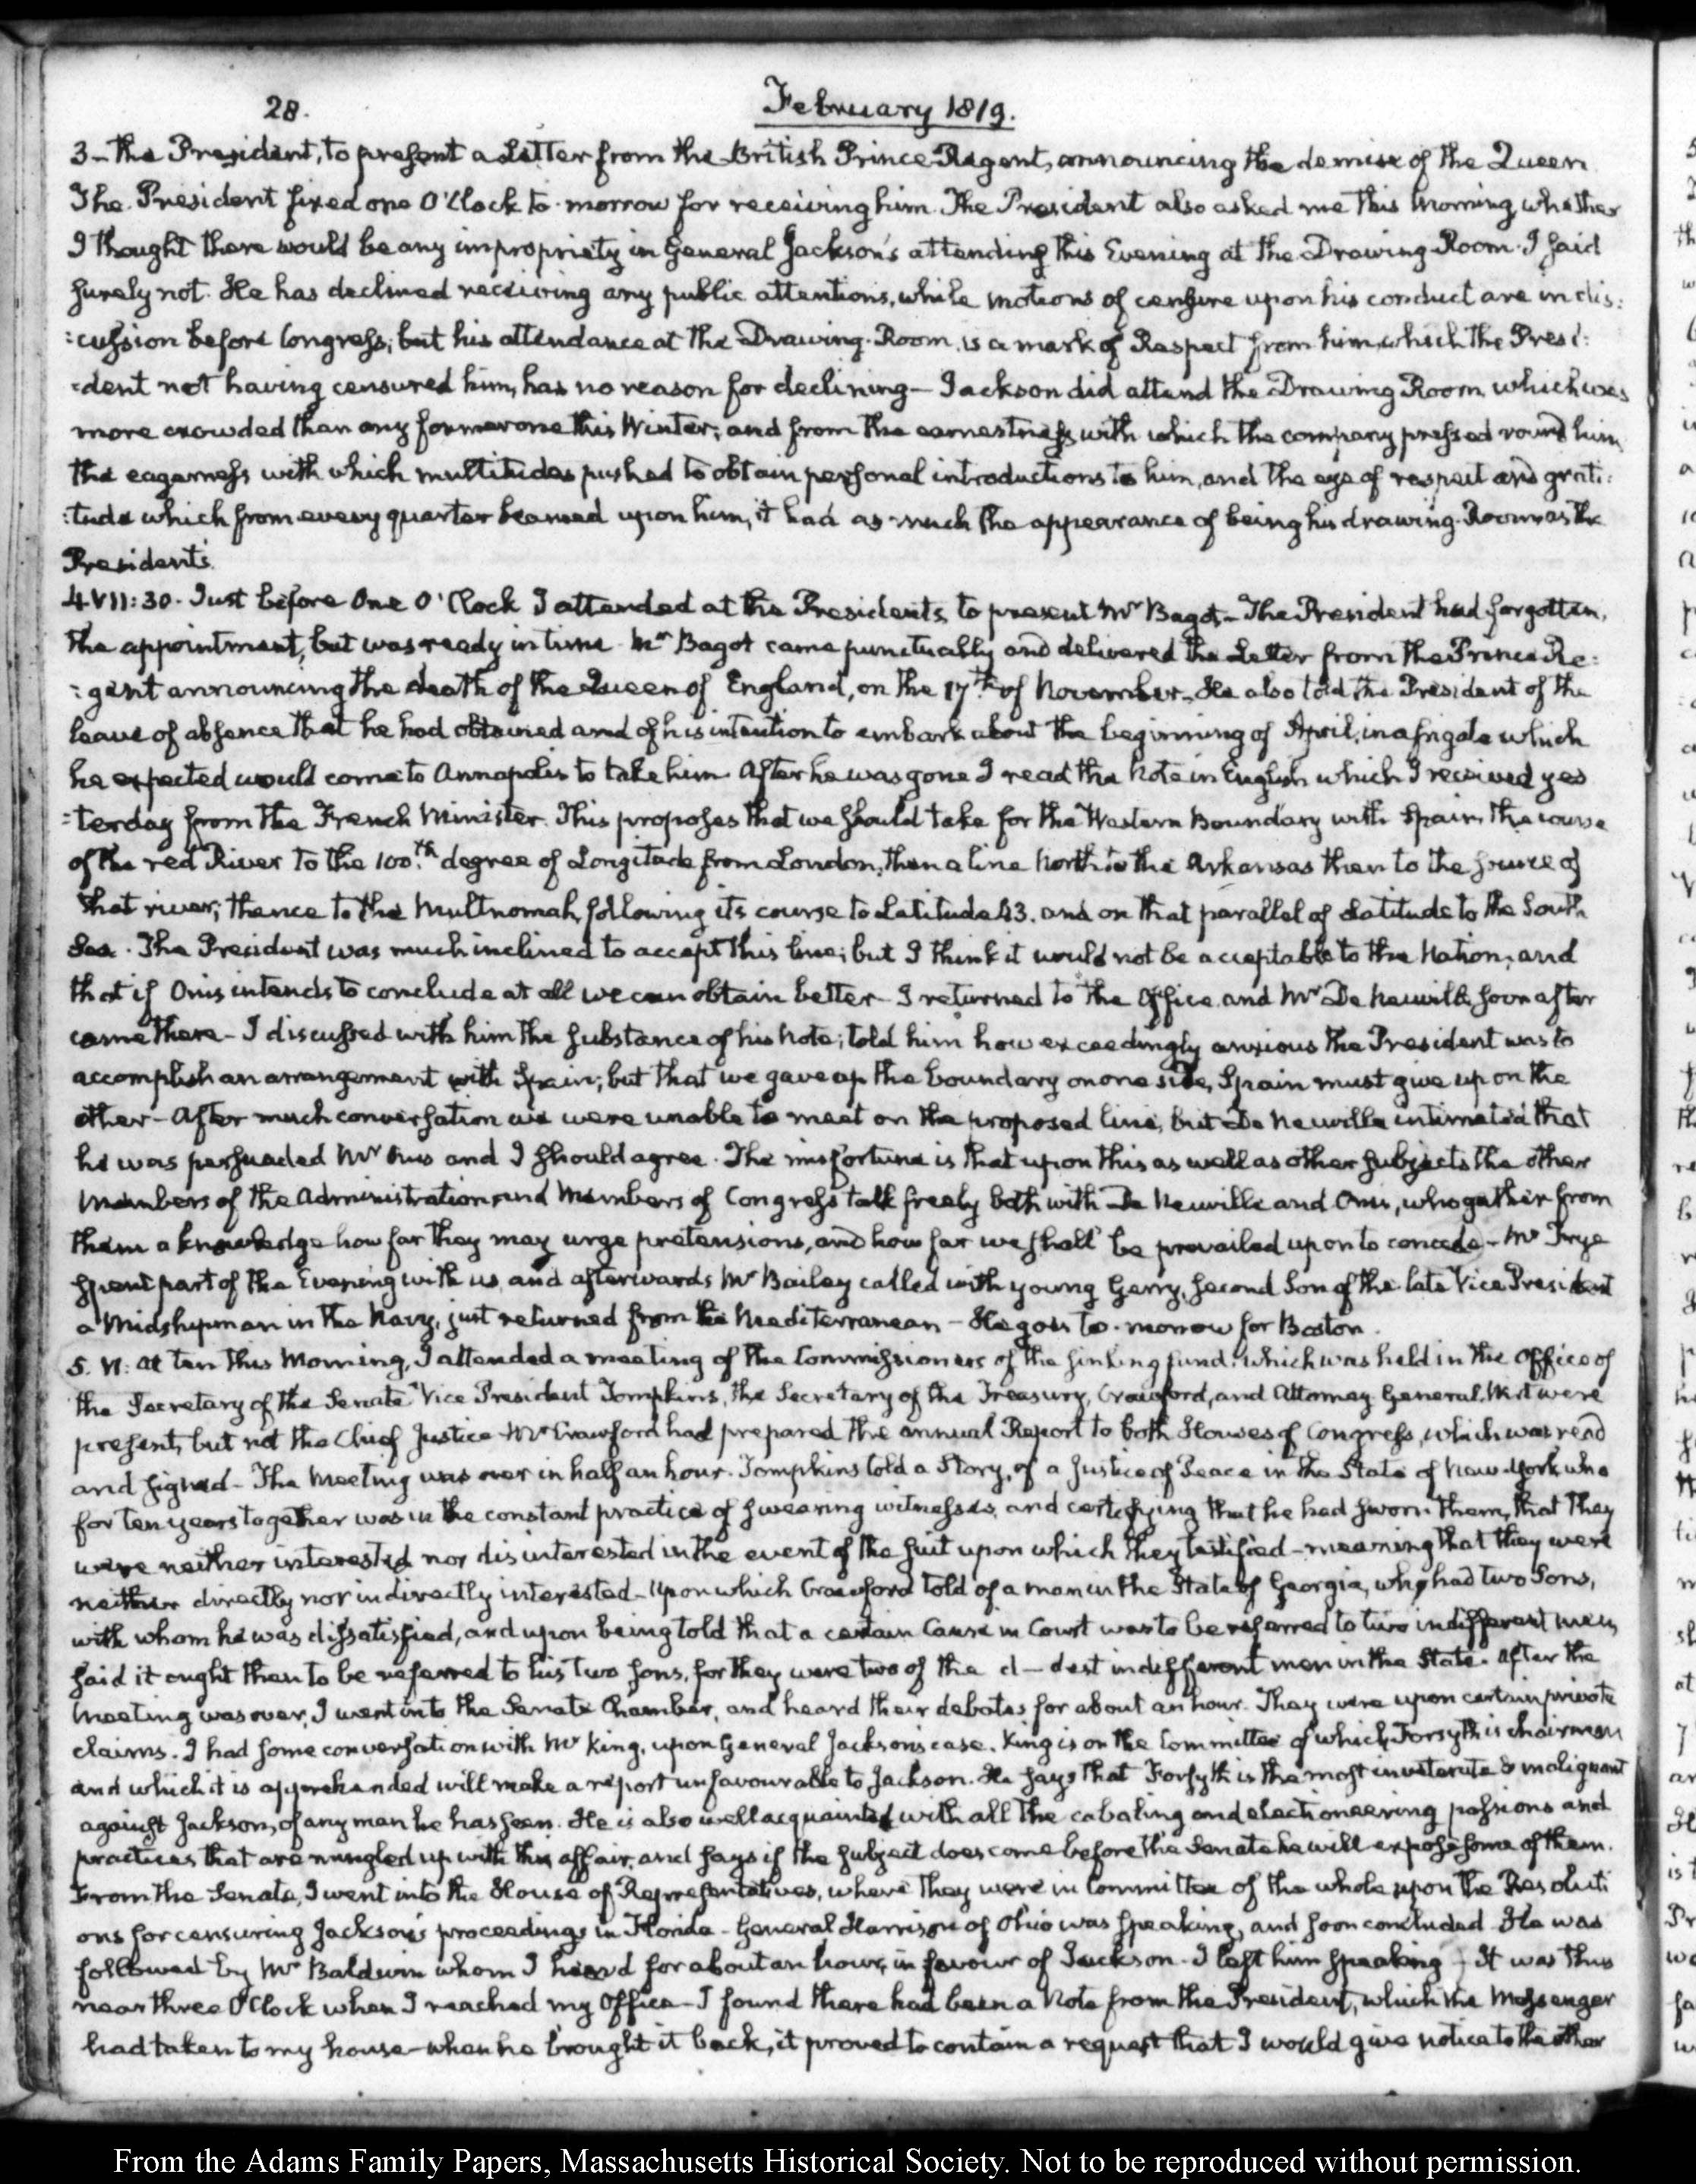 28.
February 1819.
3 – the President, to present a Letter from the British Prince Regent, announcing the demise of the Queen
The President fixed one O'Clock to-morrow for receiving him. The President also asked me this Morning whether
I thought there would be any impropriety in General Jackson's attending this Evening at the Drawing Room. I said
surely not. He has declined receiving any public attentions, while motions of censure upon his conduct are in dis:
:cussion before Congress, but his attendance at the Drawing-Room, is a mark of Respect from him, which the Presi:
:dent not having censured him, has no reason for declining – Jackson did attend the Drawing Room which was
more crowded than any former one this Winter; and from the earnestness with which the company pressed round him
the eagerness with which multitudes pushed to obtain personal introductions to him, and the eye of respect and grati:
:tude which from every quarter beamed upon him, it had as much the appearance of being his drawing-Room as the
President's.
4 VII:30. Just before One O'Clock I attended at the Presidents, to present Mr Bagot – The President had forgotten
the appointment, but was ready in time. Mr Bagot came punctually and delivered the Letter from the Prince Re:
:gent announcing the death of the Queen of England, on the 17th of November. He also told the President of the
leave of absence that he had obtained and of his intention to embark about the beginning of April, in a frigate which
he expected would come to Annapolis to take him. After he was gone I read the Note in English which I received yes
:terday from the French Minister. This proposes that we should take for the Western Boundary with Spain, the course
of the red River to the 100.th degree of Longitude from London, then a line North to the Arkansas then to the source of
that river; thence to the Multnomah, following its course to Latitude 43. and on that parallel of Latitude to the South
Sea. The President was much inclined to accept this line; but I think it would not be acceptable to the Nation, and
that if Onis intends to conclude at all we can obtain better – I returned to the Office and Mr De Neuville soon after
came there – I discussed with him the substance of his Note; told him how exceedingly anxious the President was to
accomplish an arrangement with Spain; but that we gave up the boundary on one side, Spain must give up on the
other – After much conversation we were unable to meet on the proposed line, but De Neuville intimated that
he was persuaded Mr Onis and I should agree. The misfortune is that upon this as well as other subjects the other
Members of the Administration, and Members of Congress talk freely both with De Neuville and Onis, who gather from
them a knowledge how far they may urge pretensions, and how far we shall be prevailed upon to concede – Mr Frye
spent part of the Evening with us, and afterwards Mr Bailey called with young Gerry, second Son of the late Vice President
a Midshipman in the Navy, just returned from the Mediterranean – He goes to-morrow for Boston.
5. VI: At ten this Morning, I attended a meeting of the Commissioners of the sinking fund, which was held in the Office of
the Secretary of the Senate. Vice President Tompkins, the Secretary of the Treasury, Crawford, and Attorney General, Wirt were
present, but not the Chief Justice. Mr Crawford had prepared the annual Report to both Houses of Congress, which was read
and signed – The Meeting was over in half an hour. Tompkins told a Story, of a Justice of Peace in the State of New-York who
for ten years together was in the constant practice of swearing witnesses, and certifying that he had sworn them, that they
were neither interested nor disinterested in the event of the suit upon which they testified – meaning that they were
neither directly nor indirectly interested – Upon which Crawford told of a man in the State of Georgia, who had two Sons,
with whom he was dissatisfied, and upon being told that a certain Cause in Court was to be referred to two indifferent men,
said it ought then to be referred to his two Sons, for they were two of the d—dest indifferent men in the State. After the
Meeting was over, I went into the Senate Chamber, and heard their debates for about an hour. They were upon certain private
claims. I had some conversation with Mr King, upon General Jackson's case. King is on the Committee of which Forsyth is chairman
and which it is apprehended will make a report unfavourable to Jackson. He says that Forsyth is the most inveterate & malignant
against Jackson, of any man he has seen. He is also well acquainted with all the cabaling and electioneering passions and
practices that are mingled up with this affair, and says if the subject does come before the Senate he will expose some of them.
From the Senate, I went into the House of Representatives, where they were in Committee of the whole upon the Resoluti
ons for censuring Jackson's proceedings in Florida – General Harrison of Ohio was speaking, and soon concluded. He was
followed by Mr Baldwin whom I heard for about an hour, in favour of Jackson. I left him speaking – It was thus
near three O'Clock when I reached my Office – I found there had been a Note from the President, which the Messenger
had taken to my house – when he brought it back, it proved to contain a request that I would give notice to the other
From the Adams Family Papers, Massachusetts Historical Society. Not to be reproduced without permission.